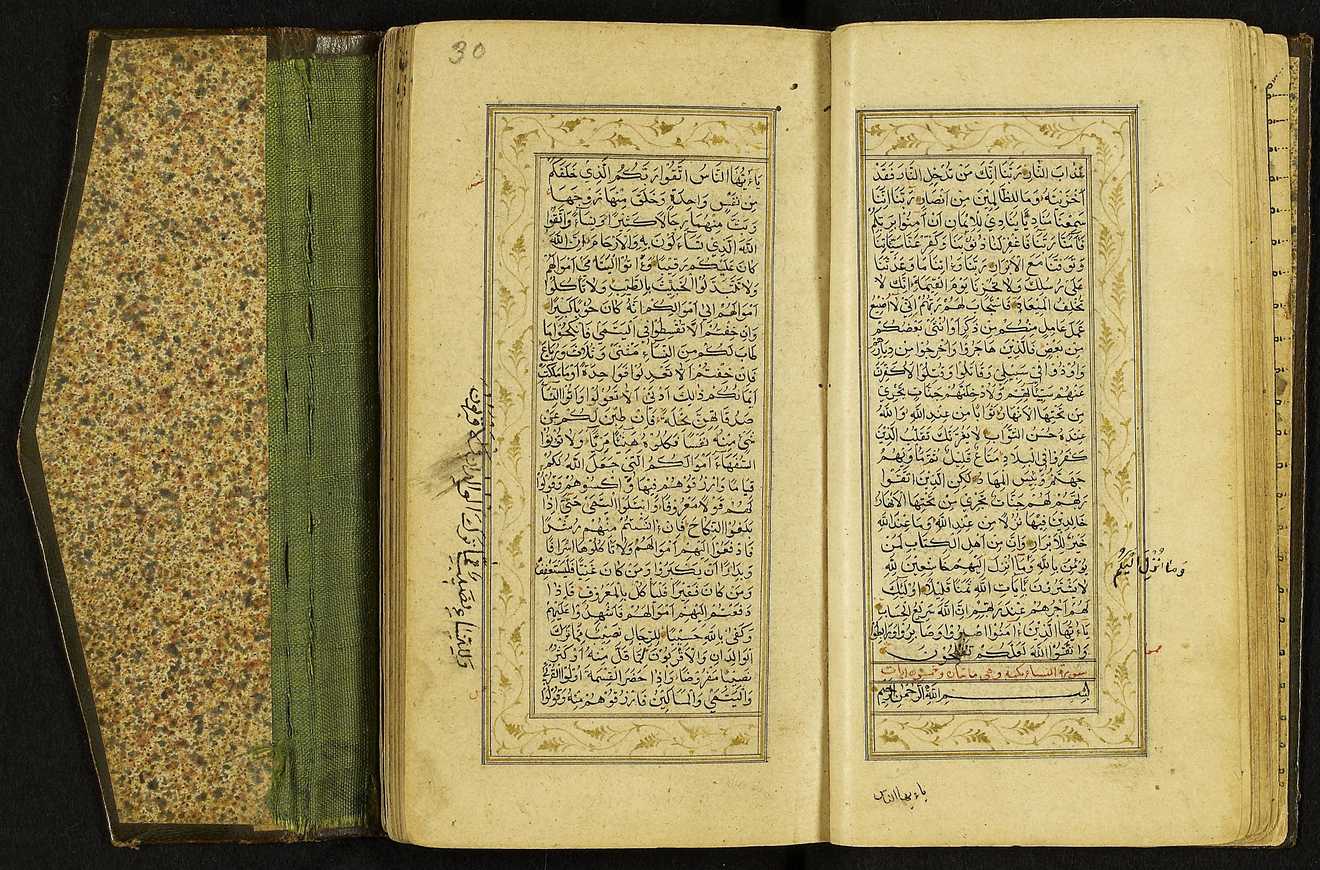 عَذَابَ النَّارِ رَبَّنَا اِنَّكَ مَنْ تُدْخِلِ النَّارَ فَقَدْ
اَخْزَيْتَهُ وَمَا لِلظَّالِمِينَ مِنْ اَنْصَارٍ رَبَّنَا اِنَّنَا
سَمِعْنَا مُنَادِيًا يُنَادِي لِلْاِيمَانِ اَنْ آمِنُوا بِرَبِّكُمْ
فَآمَنَّا رَبَّنَا فَاغْفِرْ لَنَا ذُنُوبَنَا وَكَفِّرْ عَنَّا سَيِّئَاتِنَا
وَتَوَفَّنَا مَعَ الْاَبْرَارِ رَبَّنَا وَءَاتِنَا مَا وَعَدْتَنَا
عَلَى رُسُلِكَ وَلَا تُخْزِنَا يَوْمَ الْقِيَمَةِ اِنَّكَ لَا
تُخْلِفُ الْمِيعَادَ فَاسْتَجَابَ لَهُمْ رَبُّهُمْ اَنِّي لَا اُضِيعُ
عَمَلَ عَامِلٍ مِنْكُمْ مِنْ ذَكَرٍ اَوْ اُنْثَى بَعْضُكُمْ
مِنْ بَعْضٍ فَالَّذِينَ هَاجَرُوا وَاُخْرِجُوا مِنْ دِيَارِهِمْ
وَاُوذُوا فِي سَبِيلِي وَقَاتَلُوا وَقُتِلُوا لَاُكَفِّرَنَّ
عَنْهُمْ سَيِّئَاتِهِمْ وَلَاُدْخِلَنَّهُمْ جَنَّاتٍ تَجْرِي
مِنْ تَحْتِهَا الْاَنْهَارُ ثَوَابًا مِنْ عِنْدِ اللَّهِ وَاللَّهُ
عِنْدَهُ حُسْنُ الثَّوَابِ لَا يَغُرَّنَّكَ تَقَلُّبُ الَّذِينَ
كَفَرُوا فِي الْبِلَادِ مَتَاعٌ قَلِيلٌ ثُمَّ مَأْوَيهُمْ
جَهَنَّمُ وَبِئْسَ الْمِهَادُ لَكِنِ الَّذِينَ اتَّقَوْا
رَبَّهُمْ لَهُمْ جَنَّاتٌ تَجْرِي مِنْ تَحْتِهَا الْاَنْهَارُ
خَالِدِينَ فِيهَا نُزُلًا مِنْ عِنْدِ اللَّهِ وَمَا عِنْدَ اللَّهِ
خَيْرٌ لِلْاَبْرَارِ وَاِنَّ مِنْ اَهْلِ الْكِتَابِ لَمَنْ
يُؤْمِنُ بِاللَّهِ وَمَا اُنْزِلَ اِلَيْهِمْ خَاشِعِينَ لِلَّهِ
لَا يَشْتَرُونَ بِآيَاتِ اللَّهِ ثَمَنًا قَلِيلًا اُولَئِكَ
لَهُمْ اَجْرُهُمْ عِنْدَ رَبِّهِمْ اِنَّ اللَّهَ سَرِيعُ الْحِسَابِ
يَاءَيُّهَا الَّذِينَ ءَامَنُوا اصْبِرُوا وَصَابِرُوا وَرَابِطُوا
وَاتَّقُوا اللَّهَ لَعَلَّكُمْ تُفْلِحُونَ
سورة النساء وهي مائتان ايات
بِسْمِ اللَّهِ الرَّحْمَنِ الرَّحِيمِ
وَمَا اُنْزِلَ اِلَيْكُمْ
ياءيها الناس
30
يَاءَيُّهَا النَّاسُ اتَّقُوا رَبَّكُمُ الَّذِي خَلَقَكُمْ
مِنْ نَفْسٍ وَاحِدَةٍ وَخَلَقَ مِنْهَا زَوْجَهَا
وَبَثَّ مِنْهُمَا رِجَالًا كَثِيرًا وَنِسَاءً وَاتَّقُوا
اللَّهَ الَّذِي تَسَاءَلُونَ بِهِ وَالْاَرْحَامَ اِنَّ اللَّهَ
كَانَ عَلَيْكُمْ رَقِيبًا وَءَاتُوا الْيَتَمَى اَمْوَالَهُمْ
وَلَا تَتَبَدَّلُوا الْخَبِيثَ بِالطَّيِّبِ وَلَا تَأْكُلُوا
اَمْوَالَهُمْ اِلَى اَمْوَالِكُمْ اِنَّهُ كَانَ حُوبًا كَبِيرًا
وَاِنْ خِفْتُمْ اَلَّا تُقْسِطُوا فِي الْيَتَمَى فَانْكِحُوا مَا
طَابَ لَكُمْ مِنَ النِّسَاءِ مَثْنَى وَثُلَاثَ وَرُبَاعَ
فَاِنْ خِفْتُمْ اَلَّا تَعْدِلُوا فَوَاحِدَةً اَوْ مَا مَلَكَتْ
اَيْمَانُكُمْ ذَلِكَ اَدْنَى اَلَّا تَعُولُوا وَآتُوا النِّسَاءَ
صَدُقَاتِهِنَّ نِحْلَةً فَاِنْ طِبْنَ لَكُمْ عَنْ
شَيْءٍ مِنْهُ نَفْسًا فَكُلُوهُ هَنِيئًا مَرِيئًا وَلَا تُؤْتُوا
السُّفَهَاءَ اَمْوَالَكُمُ الَّتِي جَعَلَ اللَّهُ لَكُمْ
قِيَامًا وَارْزُقُوهُمْ فِيهَا وَاكْسُوهُمْ وَقُولُوا
لَهُمْ قَوْلًا مَعْرُوفًا وَابْتَلُوا الْيَتَمَى حَتَّى اِذَا
بَلَغُوا النِّكَاحَ فَاِنْ ءَانَسْتُمْ مِنْهُمْ رُشْدًا
فَادْفَعُوا اِلَيْهِمْ اَمْوَالَهُمْ وَلَا تَأْكُلُوهَا اِسْرَافًا
وَبِدَارًا اَنْ يَكْبَرُوا وَمَنْ كَانَ غَنِيًّا فَلْيَسْتَعْفِفْ
وَمَنْ كَانَ فَقِيرًا فَلْيَأْكُلْ بِالْمَعْرُوفِ فَاِذَا
دَفَعْتُمْ اِلَيْهِمْ اَمْوَالَهُمْ فَاَشْهِدُوا عَلَيْهِمْ
وَكَفَى بِاللَّهِ حَسِيبًا لِلرِّجَالِ نَصِيبٌ مِمَّا تَرَكَ
الْوَالِدَانِ وَالْاَقْرَبُونَ مِمَّا قَلَّ مِنْهُ اَوْ كَثُرَ
نَصِيبًا مَفْرُوضًا وَاِذَا حَضَرَ الْقِسْمَةَ اُولُوا الْقُرْبَى
وَالْيَتَمَى وَالْمَسَاكِينُ فَارْزُقُوهُمْ مِنْهُ وَقُولُوا
وَلِلنِّسَاءِ نَصِيبٌ مِمَّا تَرَكَ الْوَالِدَانِ وَالْاَقْرَبُونَ